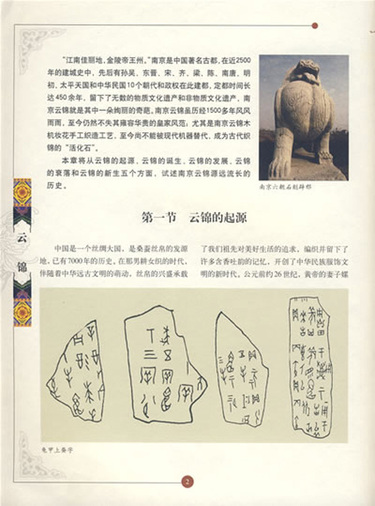 "江南佳丽地,金陵帝王州。"南京是中国著名古都,在近2500
年的建城史中,先后有孙吴、东晋、宋、齐、梁、陈、南唐、明
初、太平天国和中华民国10个朝代和政权在此建都,定都时间长
达450余年,留下了无数的物质文化遗产和非物质文化遗产,南
京云锦就是其中一朵绚丽的奇葩,南京云锦虽历经1500多年风风
雨雨,至今仍然不失其雍容华贵的皇家风范,尤其是南京云锦木
机妆花手工织造工艺,至今尚不能被现代机器替代,成为古代织
锦的"活化石"。
本章将从云锦的起源、云锦的诞生、云锦的发展、云锦
的衰落和云锦的新生五个方面,试述南京云锦源远流长的
历史。
南京六朝石刻辟邪
第一节 云锦的起源
中国是一个丝绸大国,是桑蚕丝帛的发源
地,已有7000年的历史。在那男耕女织的时代,
伴随着中华远古文明的萌动,丝帛的兴盛承载
了我们祖先对美好生活的追求,编织并留下了
许多含香吐韵的记忆,开创了中华民族服饰文
明的新时代,公元前约26世纪,黄帝的妻子嫘
云
锦
龟甲上蚕字
2